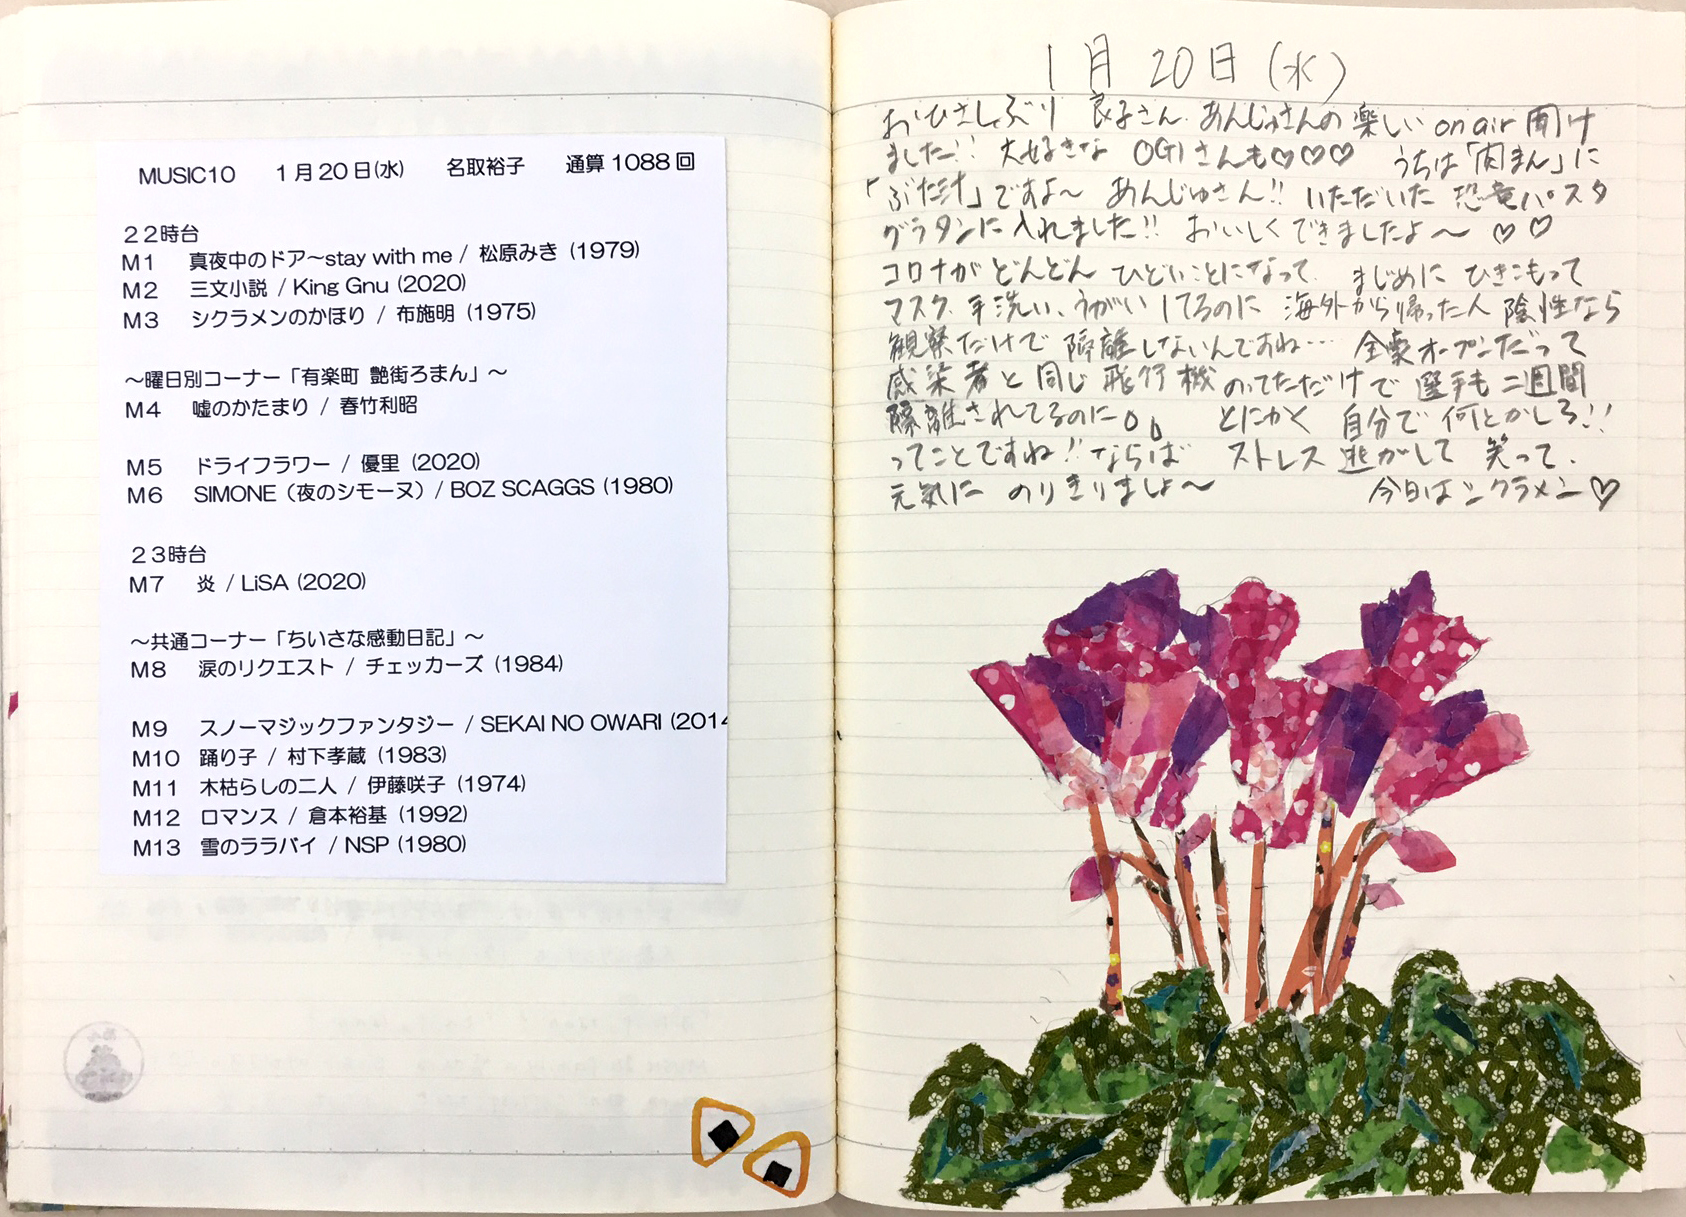 MUSIC10 1月20日(水) 名取裕子 通算1088回
22時台
M1 真夜中のドア～stay with me / 松原みき (1979)
M2 三文小説 / King Gnu (2020)
M3 シクラメンのかほり / 布施明 (1975)
～曜日別コーナー「有楽町 艶街ろまん」～
M4 嘘のかたまり / 春竹利昭
M5 ドライフラワー / 優里 (2020)
M6 SIMONE（夜のシモーヌ）/ BOZ SCAGGS (1980)
23時台
M7 炎 / LiSA (2020)
～共通コーナー「ちいさな感動日記」～
M8 涙のリクエスト / チェッカーズ (1984)
M9 スノーマジックファンタジー / SEKAI NO OWARI (2014
M10 踊り子 / 村下孝蔵 (1983)
M11 木枯らしの二人 / 伊藤咲子 (1974)
M12 ロマンス / 倉本裕基 (1992)
M13 雪のララバイ / NSP (1980)
1月20日(水)
おひさしぶり 良子さん、あんじゅさんの楽しい on air 聞け
ました!! 大好きな OGIさんも♡♡♡ うちは「肉まん」に
「ぶた汁」ですよ～ あんじゅさん!! いただいた 恐竜パスタ
グラタンに入れました!! おいしくできましたよ～ ♡♡
コロナがどんどん ひどいことになって まじめに ひきこもって
マスク、手洗い、うがい してるのに 海外から帰った人 陰性なら
観察だけで 隔離しないんですね… 全豪オープンだって
感染者と同じ飛行機 のってただけで 選手も二週間
隔離されてるのに。 とにかく 自分で何とかしろ!!
ってことですね!! ならば ストレス逃がして 笑って、
元気に のりきりましょ～ 今日はシクラメン♡